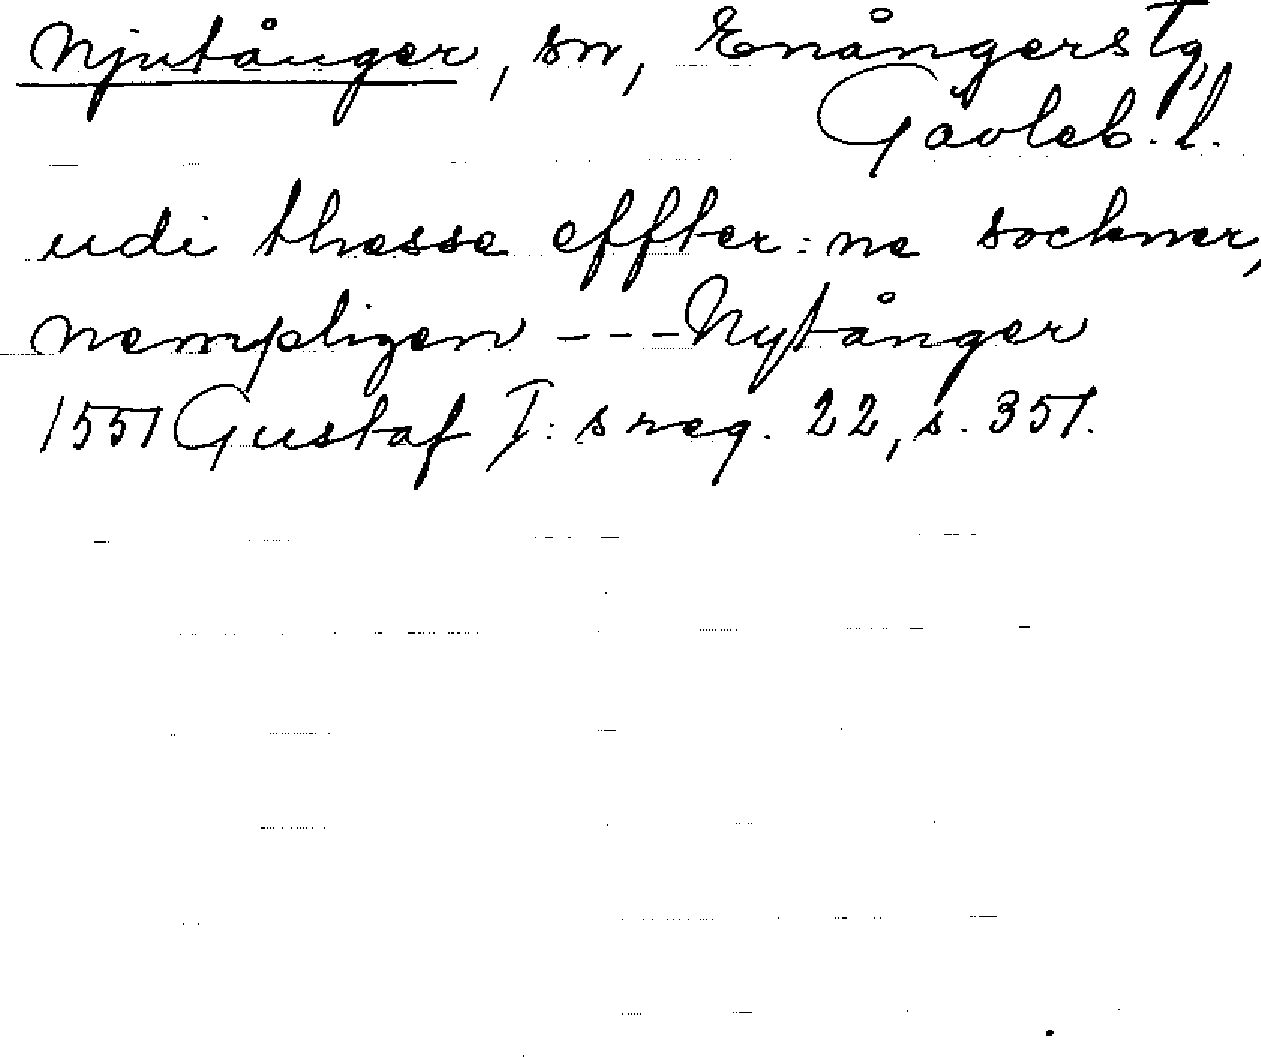 Njutånger, sn, Enångers tg,
Gävleb. l.
udi thesse effter:ne sockner,
nempligen --- Nytånger
1551 Gustaf I:s reg. 22, s. 351.